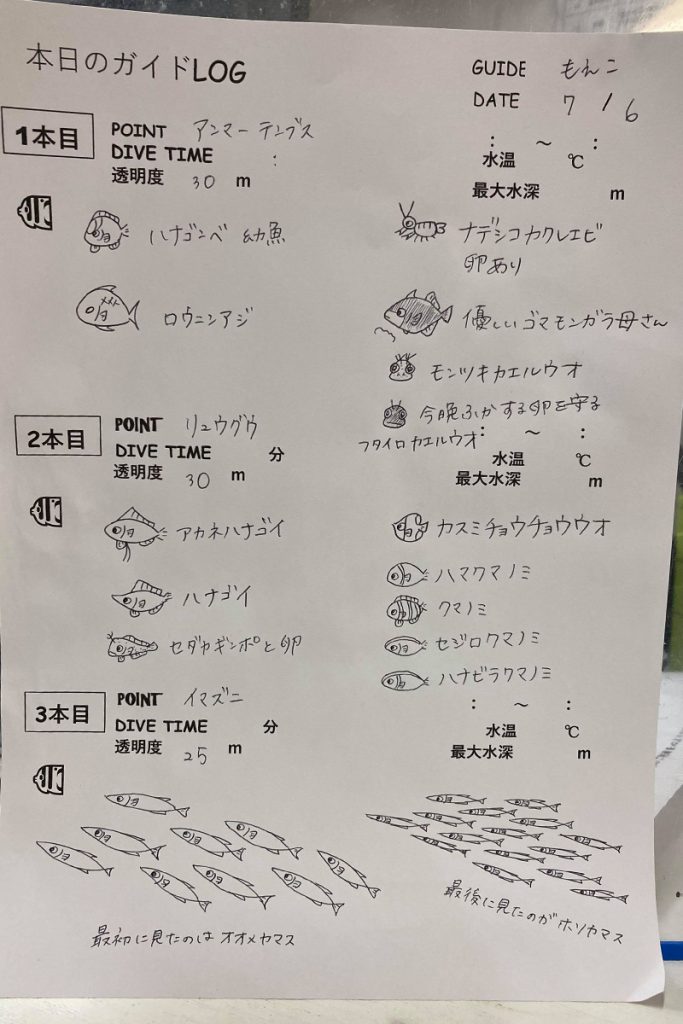 本日のガイドLOG
GUIDE もえこ
DATE 7 / 6
1本目
POINT アンマーテンブス
DIVE TIME :
: ～ :
透明度 30 m
水温 ℃
最大水深 m
ハナゴンベ 幼魚
ナデシコカクレエビ
卵あり
ロウニンアジ
優しいゴマモンガラ母さん
モンツキカエルウオ
今晩ふかする卵を守る
フタイロカエルウオ
2本目
POINT リュウグウ
DIVE TIME 分
: ～ :
透明度 30 m
水温 ℃
最大水深 m
アカネハナゴイ
ハナゴイ
セダカギンポと卵
カスミチョウチョウウオ
ハマクマノミ
クマノミ
セジロクマノミ
ハナビラクマノミ
3本目
POINT イマズニ
DIVE TIME 分
: ～ :
透明度 25 m
水温 ℃
最大水深 m
最初に見たのは オオメカマス
最後に見たのがホソカマス